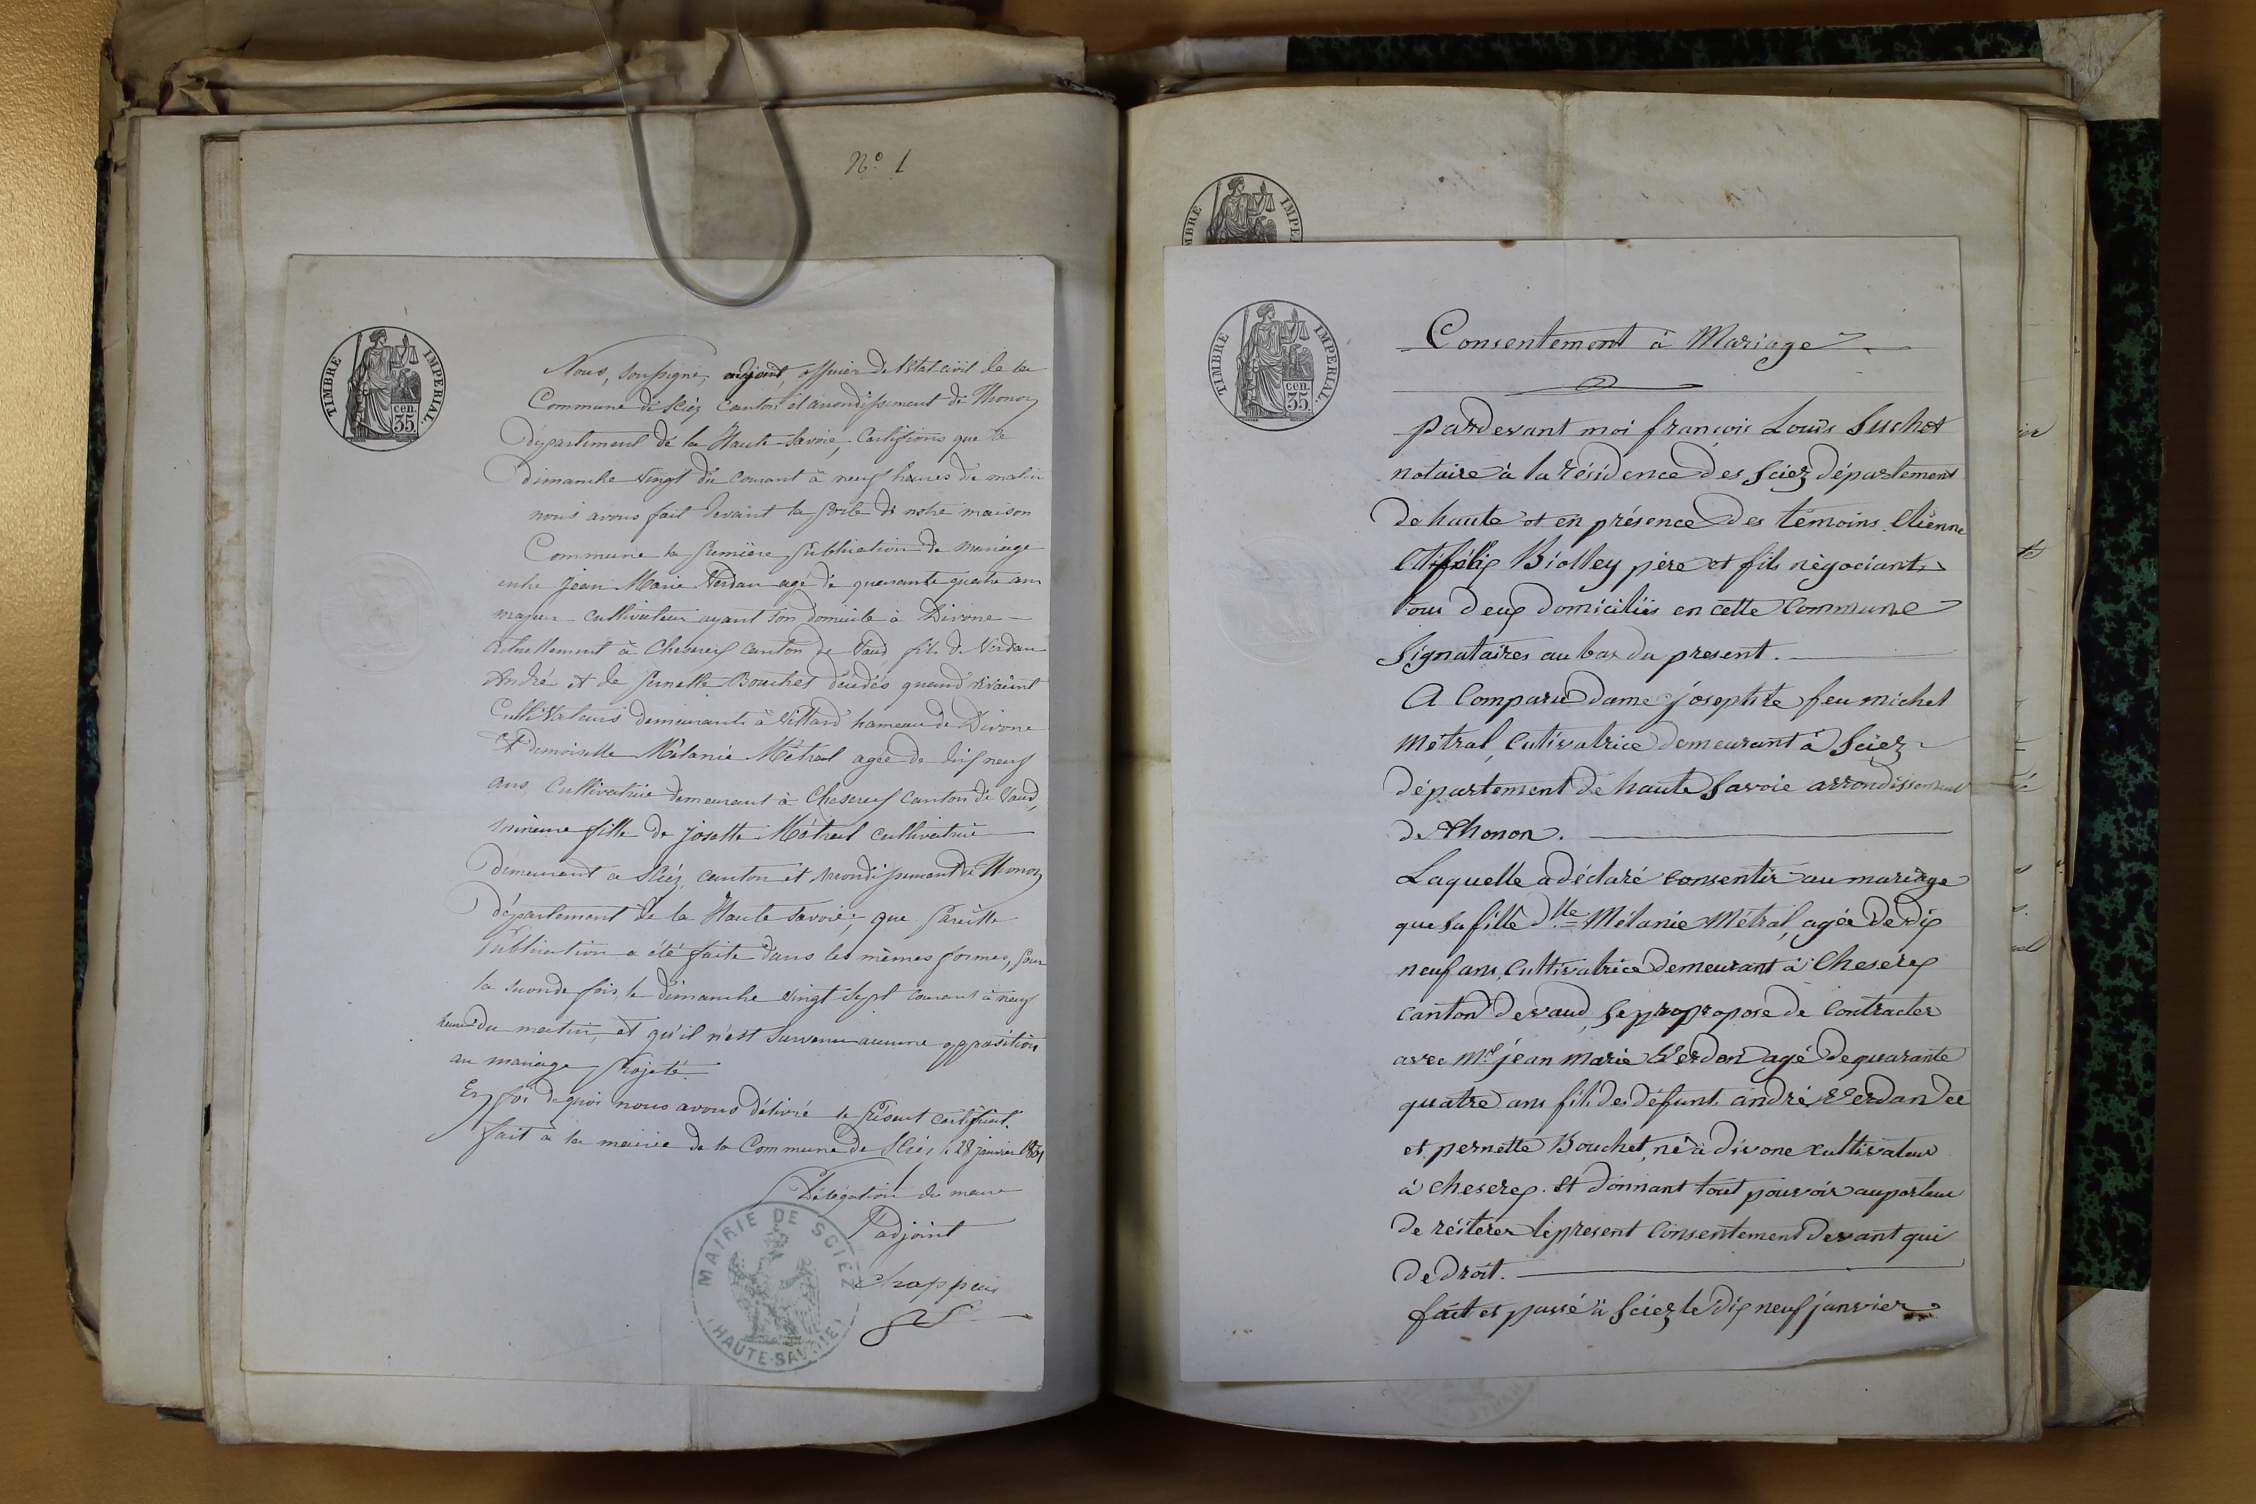 N.º 1
TIMBRE IMPERIAL
cen.
35.
Nous, soussigné, adjoint, officier de l'état civil de la
Commune de Sciez Canton et arrondissement de Thonon
département de la Haute-Savoie, Certifions que le
dimanche vingt du Courant à neuf heures du matin
nous avons fait devant la porte de notre maison
Commune la première publication de mariage
entre Jean Marie Verdan agé de quarante quatre ans
majeur cultivateur ayant son domicile à Divone
actuellement à Cheserex canton de Vaud fils de Verdan
André et de Pernette Bouchet décédés quand vivaient
Cultivateurs demeurants à Villard hameau de Divone
Et demoiselle Mélanie Métral agée de dix neuf
ans Cultivatrice demeurant à Cheserex Canton de Vaud,
mineure fille de Josette Métral cultivatrice
demeurant à Sciez, canton et arrondissement de Thonon
département de la Haute Savoie; que pareille
Publication a été faite dans les mêmes formes, pour
la seconde fois, le dimanche vingt sept courant à neuf
heures du matin, et qu'il n'est survenu aucune opposition
au mariage projeté.
En foi de quoi nous avons délivré le présent certificat.
fait à la mairie de la Commune de Sciez, le 28 janvier
Délégation du maire
l'adjoint
Chappuis
MAIRIE DE SCIEZ
(HAUTE-SAVOIE)
TIMBRE IMPERIAL.
cen.
35.
Consentement à Mariage
pardevant moi françois Louis Suchet
notaire à la résidence des Sciez département
de haute et en présence des témoins Etienne
et félix Biolley père et fils négociants
tous deux domiciliés en cette Commune
signataires au bas du present.
A Comparu dame josephte feu michel
métral, Cutivatrice demeurant à Sciez
département de haute Savoie arrondissement
de Thonon.
Laquelle a déclaré consentir au mariage
que sa fille d.lle Mélanie Métral, agée de dix
neuf ans, Cultivatrice demeurant à Cheserex
canton de vaud, se propropose de Contracter
avec M.r jean marie Verdan agé de quarante
quatre ans fils de défunts andré Verdan
et pernette Bouchet, né à divone cultivateur
à cheserex. Et donnant tout pouvoir au porteur
de réiterer le present Consentement devant qui
de droit.
fait et passé à Sciez le dix neuf janvier